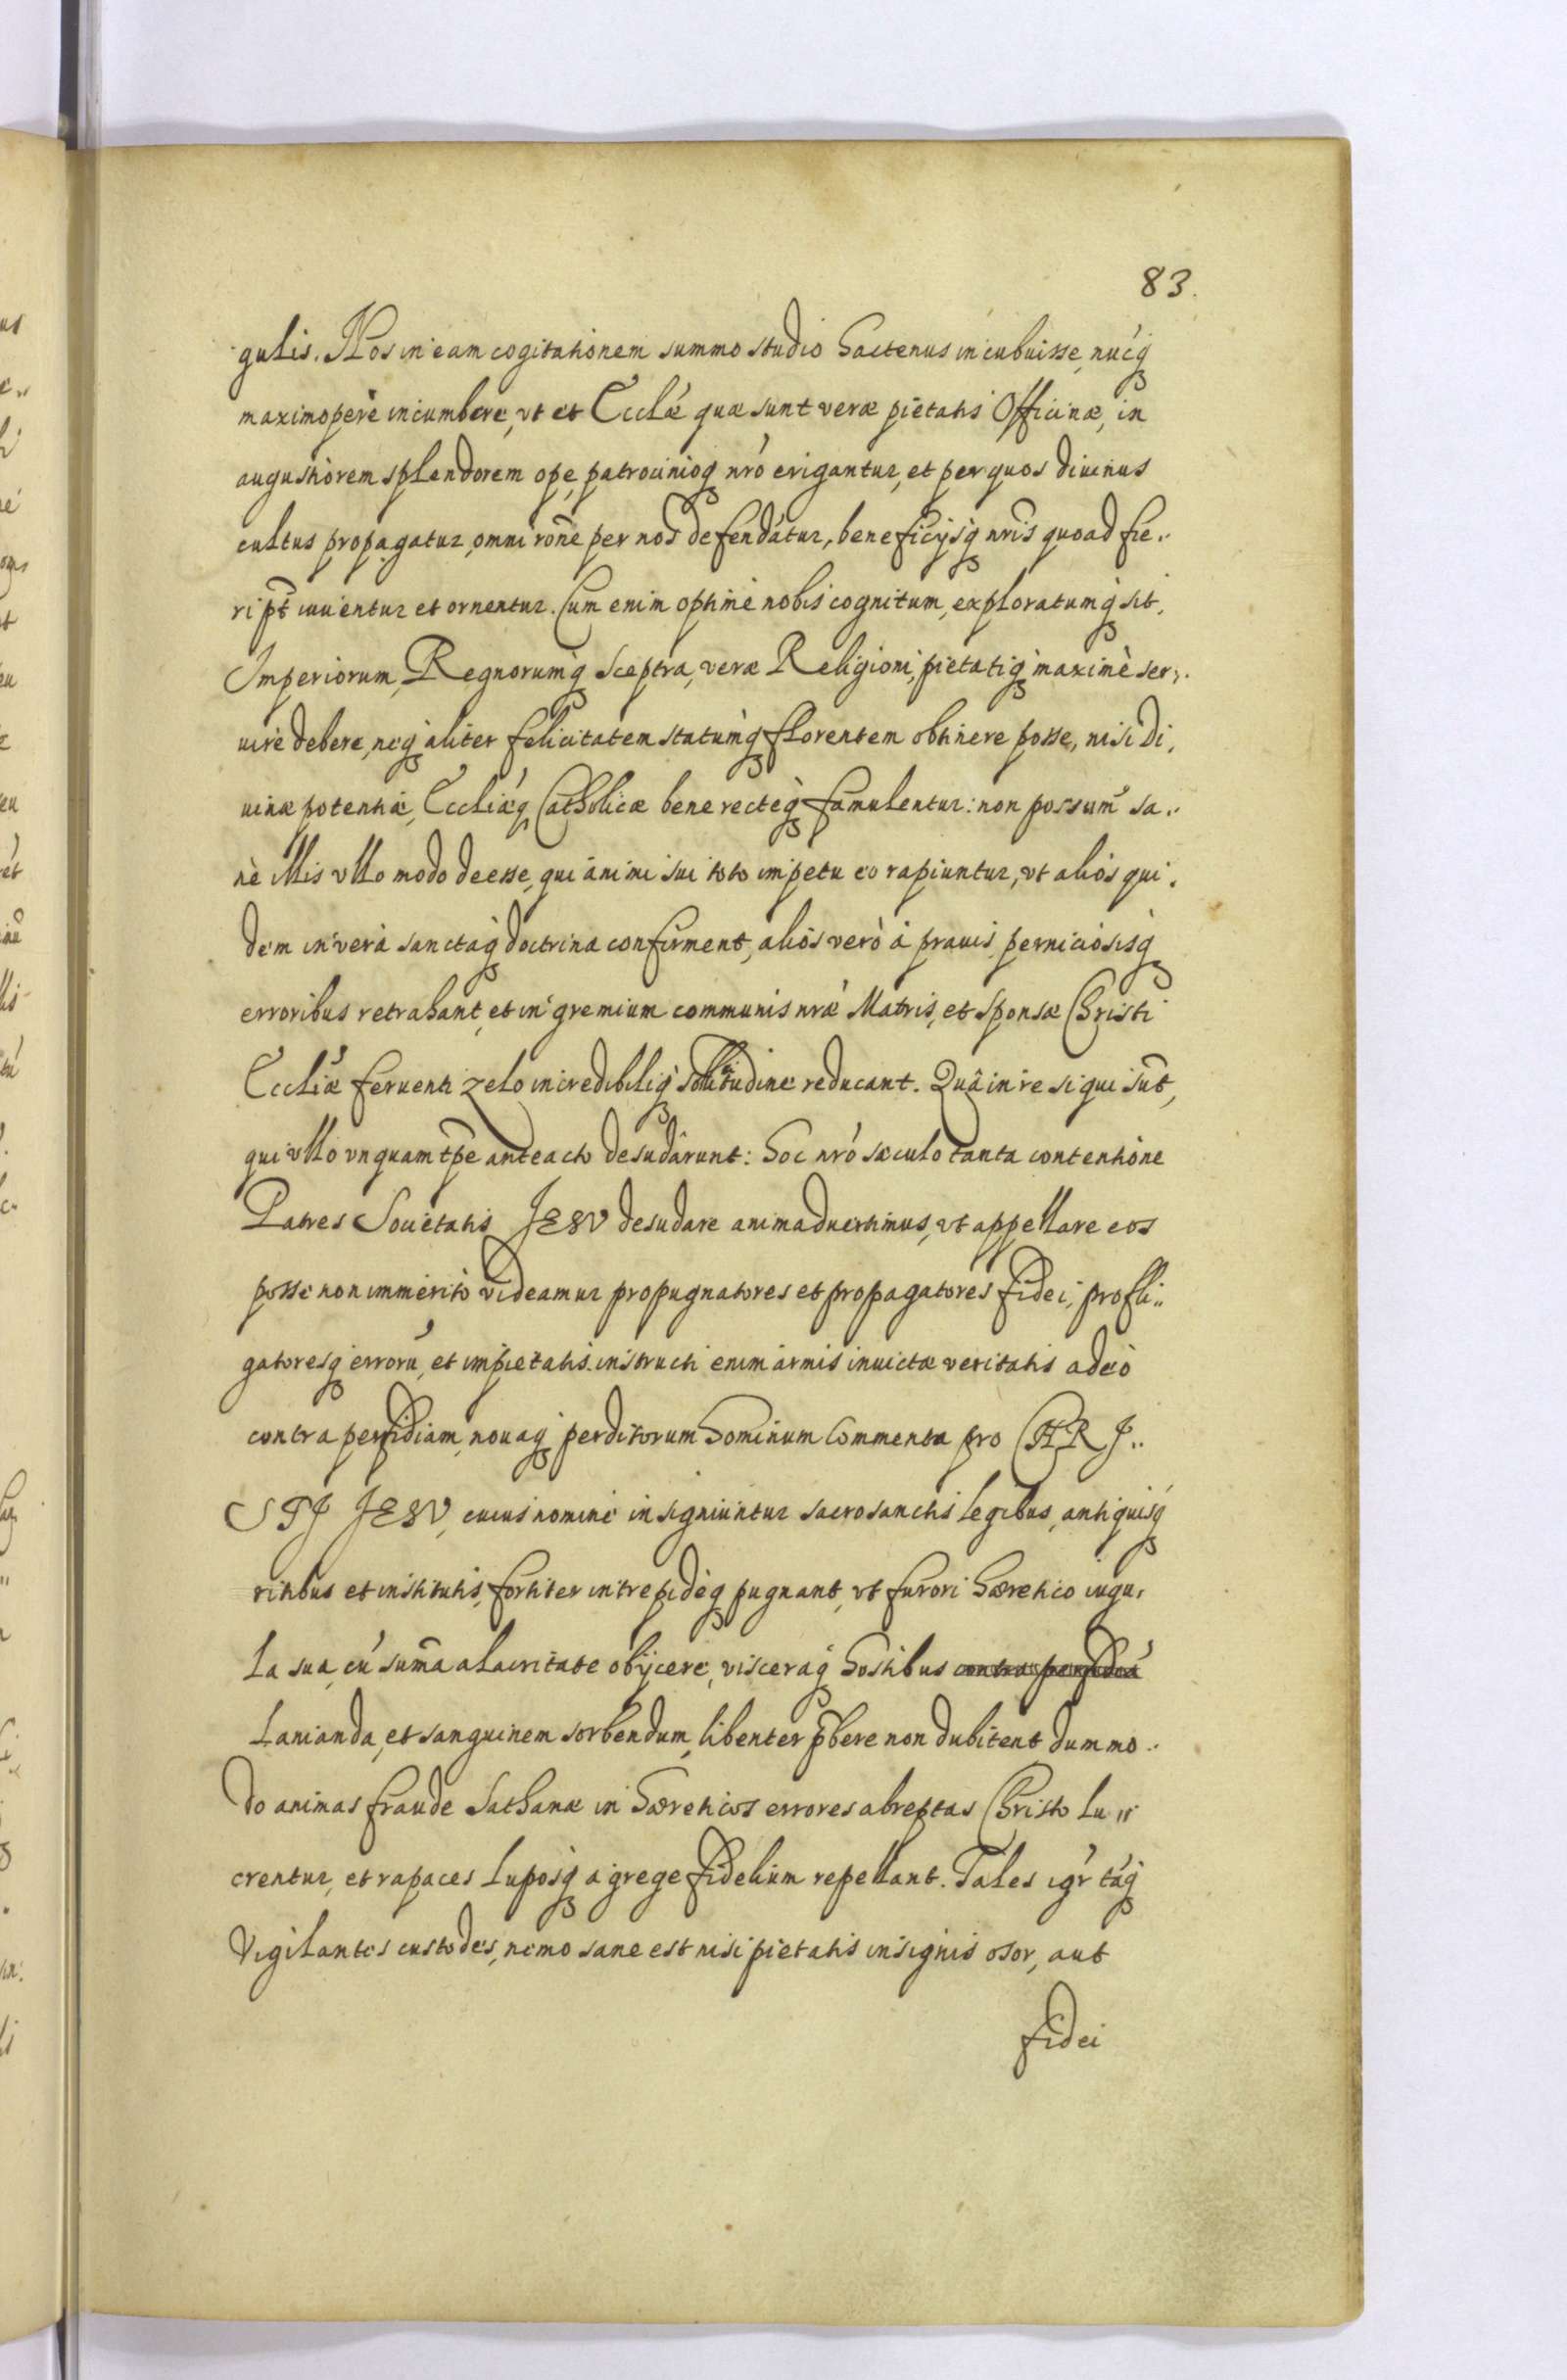 83.
gulis. Nos in eam cogitationem summo studio hactenus incubuisse, núcq́
maximoperè incumbere, vt et Ecclæ quæ sunt veræ pietatis Officinæ, in
augustiorem splendorem ope, patrocinioq nr̃o erigantur, et per quos diuinus
cultus propagatur, omni rõne per nos defendátur, beneficijsq́ nr̃is quoad fie„
ri pt̃ iuuentur et ornentur. Cum enim optimè nobis cognitum, exploratumq́ sit,
Imperiorum, Regnorumq́ Sceptra, veræ Religioni, pietatiq́ maximè ser„
uire debere, neq́ aliter felicitatem statumq́ florentem obtinere posse, nisi Di„
uinæ potentiæ, Eccliæq́ Catholicæ bene recteq́ famulentur: non possum̃ sa„
nè illis vllo modo deesse, qui animi sui toto impetu eo rapiuntur, vt alios qui„
dem in verà sanctaq́ doctrina confirment, alios verò á prauis perniciosisq́
erroribus retrahant, et in gremium communis nr̃æ Matris, et Sponsæ Christi
Eccliæ feruenti zelo incredibiliq́ sollicitudine reducant. Quâ in re si qui sũt,
qui vllo vnquam tp̃e anteacto desudârunt: hoc nr̃o sæculo tanta contentione
Patres Societatis JESV desudare animaduertimus, vt appellare eos
posse non immeritò videamur propugnatores et propagatores fidei, profli„
gatoresq́ errorũ, et impietatis. instructi enim armis inuictæ veritatis adeò
contra perfidiam, nouaq́ perditorum hominum Commenta pro CHRJ„
STJ JESV, cuius nomine insigniuntur sacrosanctis legibus, antiquisq́
ritibus et institutis, fortiter intrepidèq́ pugnant, vt furori hæretico iugu„
la sua, cũ sum̃a alacritate obijcere, visceraq́ hostibus contra perfidiã
lanianda, et sanguinem sorbendum, libenter p̃bere non dubitent, dummo„
do animas fraude Sathanæ in hæreticos errores abreptas Christo lu„
crentur, et rapaces luposq́ a grege fidelium repellant. Tales igr̃ táq́
vigilantes custodes, nemo sane est nisi pietatis insignis osor, aut
fidei